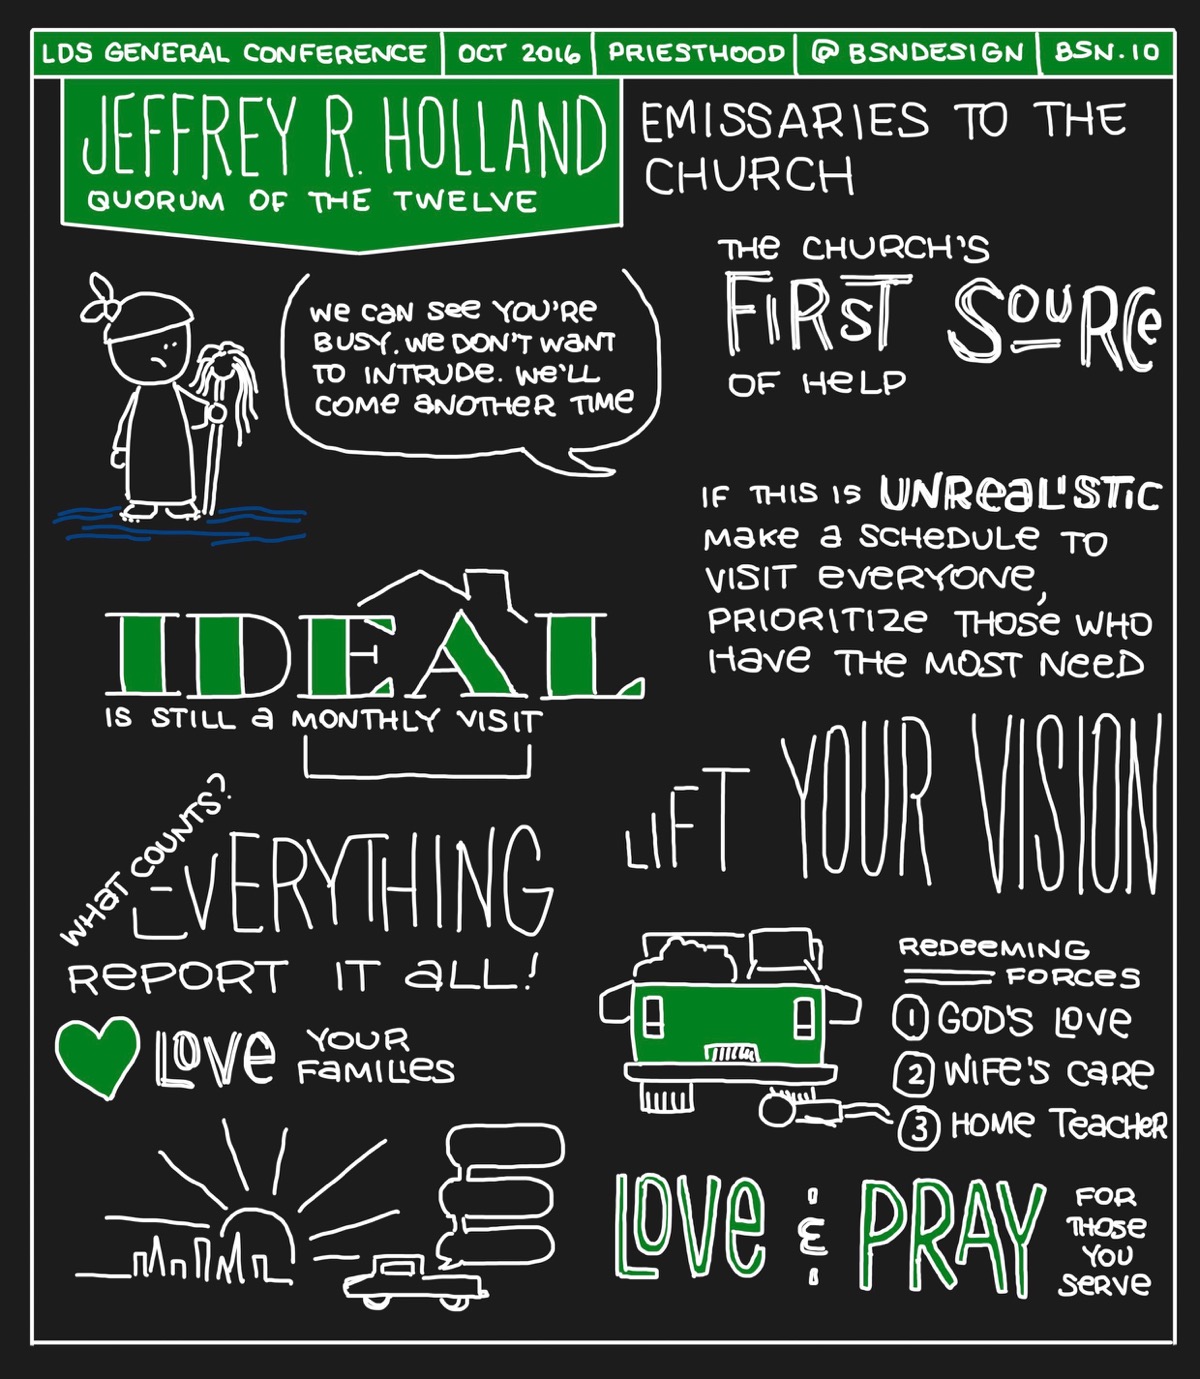 LDS GENERAL CONFERENCE
OCT 2016
PRIESTHOOD
@BSNDESIGN
BSN.IO
JEFFREY R. HOLLAND
QUORUM OF THE TWELVE
EMISSARIES TO THE
CHURCH
THE CHURCH'S
FIRST SOURCE
OF HELP
WE CAN SEE YOU'RE
BUSY. WE DON'T WANT
TO INTRUDE. WE'LL
COME ANOTHER TIME
IF THIS IS UNREALISTIC
MAKE A SCHEDULE TO
VISIT EVERYONE,
PRIORITIZE THOSE WHO
HAVE THE MOST NEED
IDEAL
IS STILL A MONTHLY VISIT
LIFT YOUR VISION
WHAT COUNTS?
EVERYTHING
REPORT IT ALL!
LOVE YOUR
FAMILIES
REDEEMING
FORCES
1 GOD'S LOVE
2 WIFE'S CARE
3 HOME TEACHER
LOVE & PRAY
FOR
THOSE
YOU
SERVE